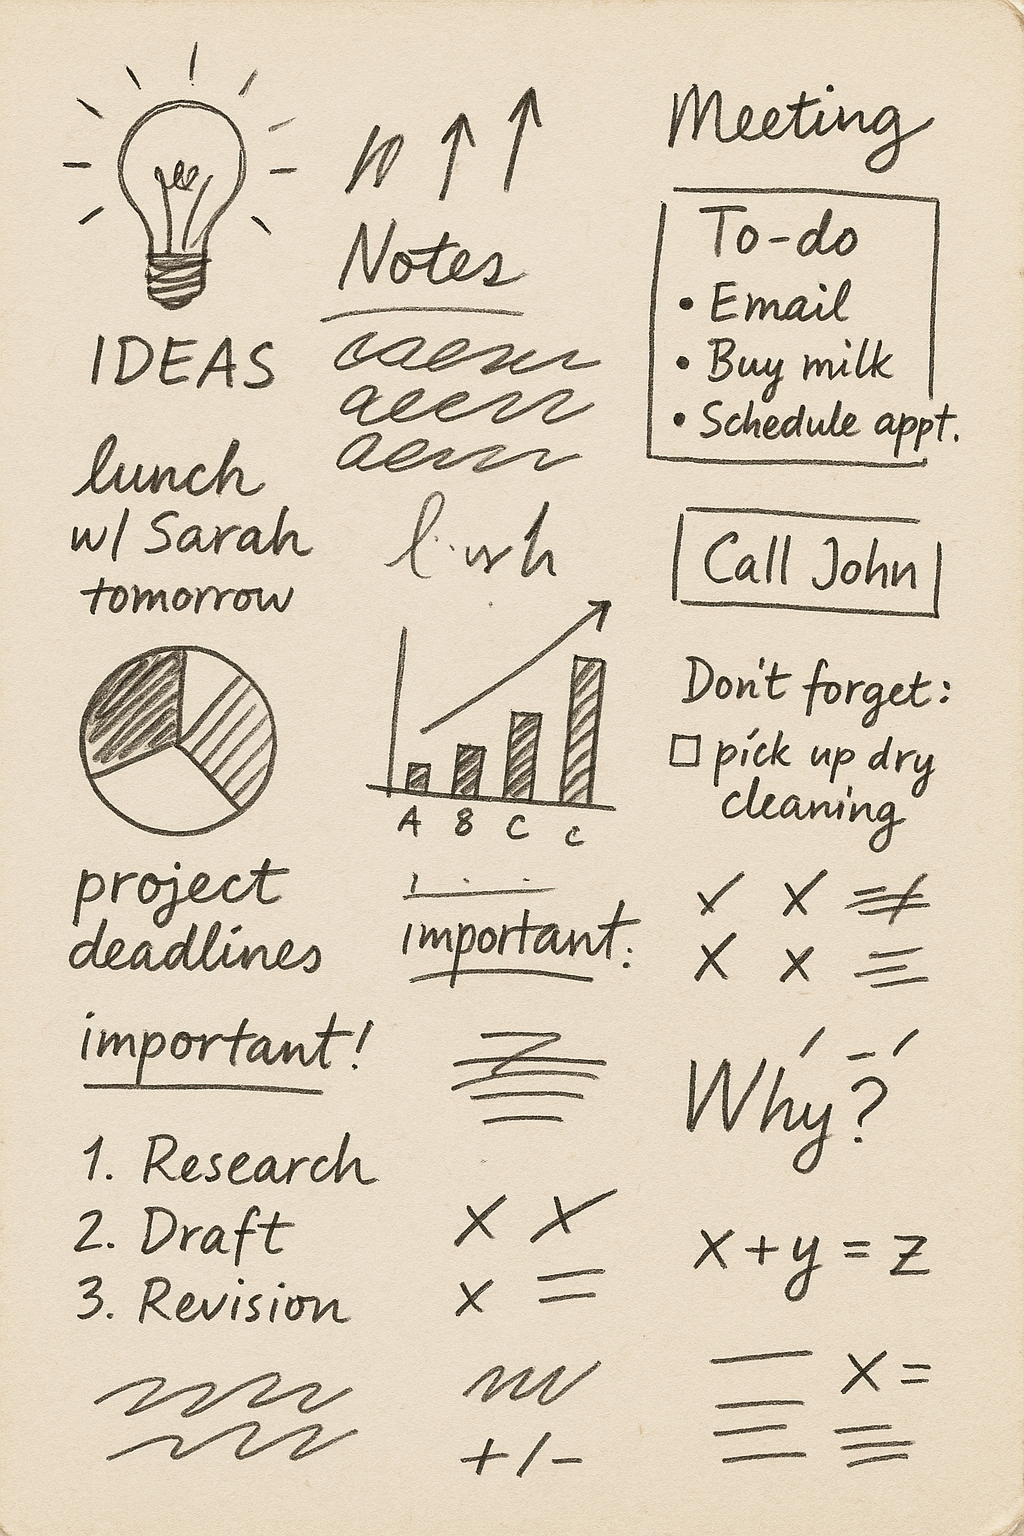 IDEAS
lunch
w/ Sarah
tomorrow
project
deadlines
important!
1. Research
2. Draft
3. Revision
Notes
A 8 C c
important:
x x
x =
+/-
Meeting
To-do
• Email
• Buy milk
• Schedule appt.
Call John
Don't forget:
☐ pick up dry
cleaning
✓ x
x x =
Why?
x + y = z
x =